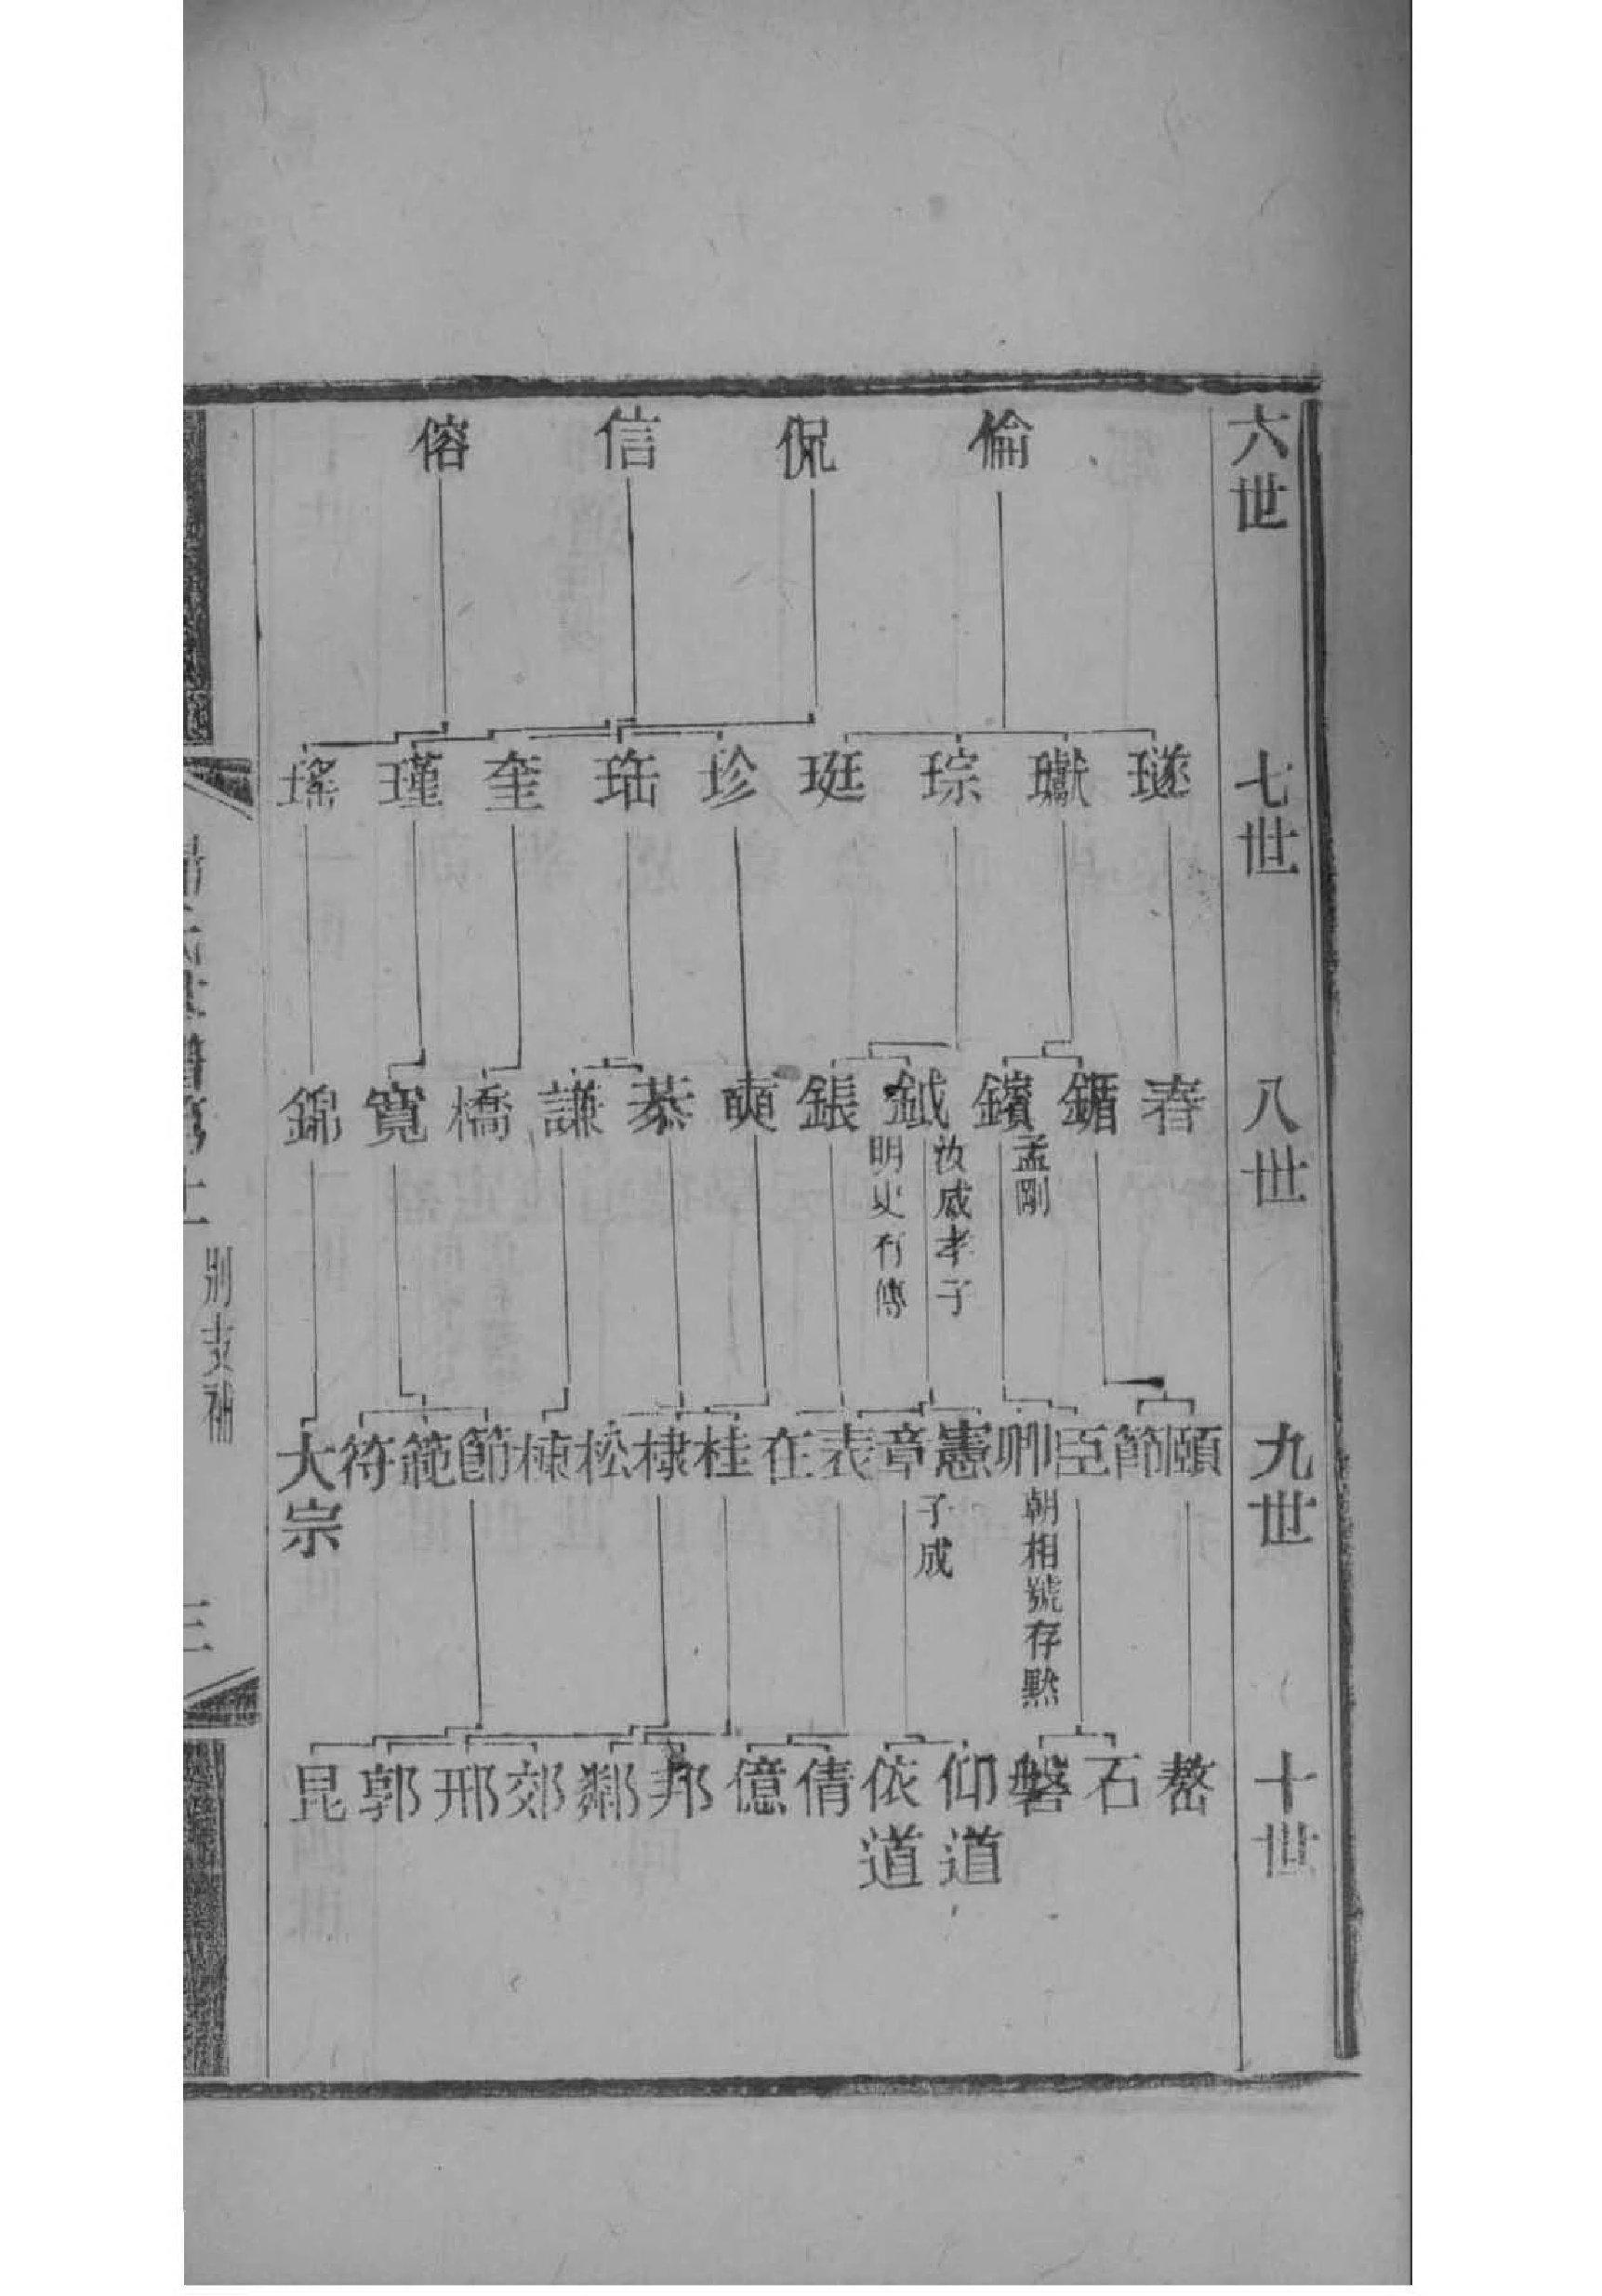 六世
倫
侃
信
傛
七世
璲
瓛
琮
珽
珍
珤
奎
瑾
瑤
八世
春
鍎
鑌 孟剛
鉞 汝威孝子 明史有傳
鋹
奭
恭
謙
橋
寬
錦
九世
頤
節
臣
卿 朝相號存默
憲 子成
章
表
在
桂
棣
松
棟
節
範
符
大宗
十世
嶅
石
磐
仰道
依道
倩
億
邦
鄰
郊
邢
郭
昆
別支補
三